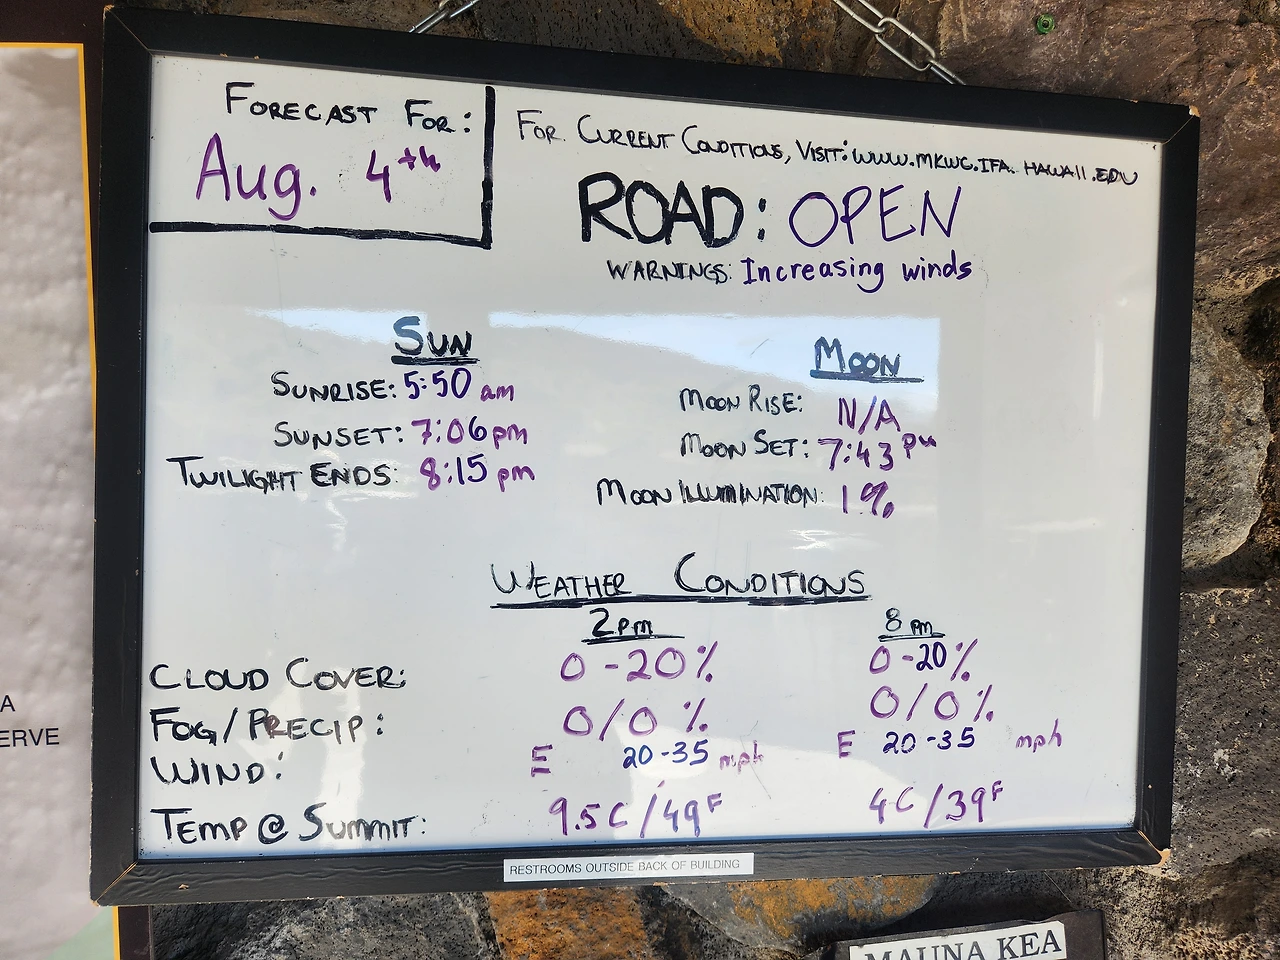 FORECAST FOR:
Aug. 4th
FOR CURRENT CONDITIONS, VISIT: WWW.MKWC.IFA.HAWAII.EDU
ROAD: OPEN
WARNINGS: Increasing winds
SUN
SUNRISE: 5:50 am
SUNSET: 7:06 pm
TWILIGHT ENDS: 8:15 pm
MOON
MOON RISE: N/A
MOON SET: 7:43 pm
MOON ILLUMINATION: 1%
WEATHER CONDITIONS
2pm 8pm
CLOUD COVER: 0-20% 0-20%
FOG/PRECIP: 0/0 % 0/0%
WIND: E 20-35 mph E 20-35 mph
TEMP @ SUMMIT: 9.5C/49F 4C/39F
RESTROOMS OUTSIDE BACK OF BUILDING
MAUNA KEA
A
ERVE